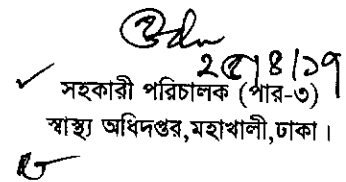 ২৫/৪/১৭
সহকারী পরিচালক (পার-৩)
স্বাস্থ্য অধিদপ্তর,মহাখালী,ঢাকা।